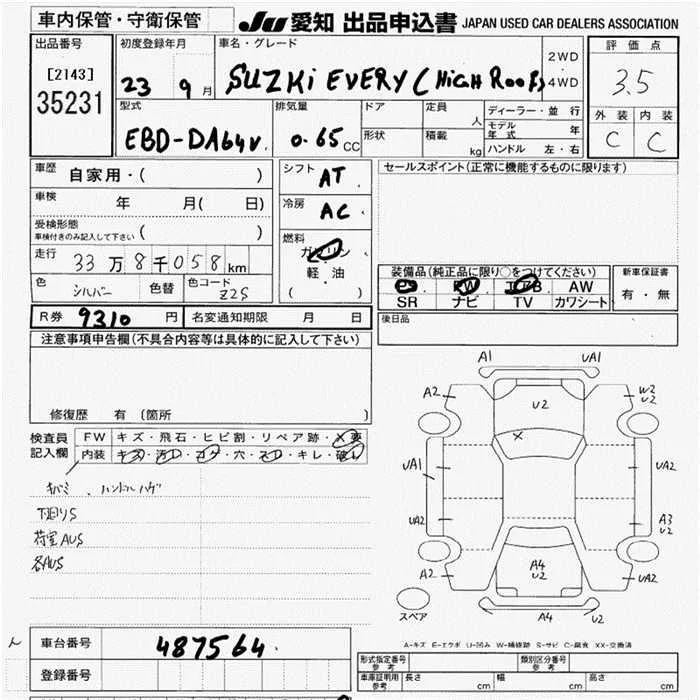 車内保管・守衛保管
JU 愛知 出品申込書 JAPAN USED CAR DEALERS ASSOCIATION
出品番号
[2143]
35231
初度登録年月
23 9月
車名・グレード
SUZKi EVERY (HiGH RooF)
2WD
4WD
評価点
3.5
外装 内装
C C
型式
EBD-DA64V.
排気量
0.65CC
ドア
形状
定員
人
積載
kg
ディーラー・並行
モデル年式 年
ハンドル 左・右
車歴 自家用・( )
車検 年 月( 日)
受検形態
車検付きのみ記入して下さい ( )
走行 33万8千058km
色 シルバー 色替 色コード Z2S
シフト AT
冷房 AC
燃料
ガソリン
軽・油
( )
セールスポイント(正常に機能するものに限ります)
装備品(純正品に限り○をつけてください)
PS PW エアB AW
SR ナビ TV カワシート
新車保証書
有・無
R券 9310円 名変通知期限 月 日
後日品
注意事項申告欄(不具合内容等は具体的に記入して下さい)
修復歴 有(箇所 )
検査員記入欄
FW キズ・飛石・ヒビ割・リペア跡・X要
内装 キズ・汚れ・コゲ・穴・スレ・キレ・破レ
キバミ . ハンドルハゲ
下廻りS
荷室AUS
各AUS
A1 UA1
A2 U2 W2 U2
UA1 UA2
UA2 A3 U2
A2 A4 U2 UA2
スペア A4 U2
A-キズ E-エクボ U-凹み W-補修跡 S-サビ C-腐食 XX-交換済
車台番号 487564.
登録番号
形式指定番号 参考
類別区分番号 参考
車庫証明用 参考 長さ cm 幅 cm 高さ cm